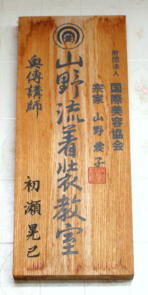 財団法人
国際美容協会
宗家 山野愛子
山野流着装教室
奥傳講師
初瀬晃己